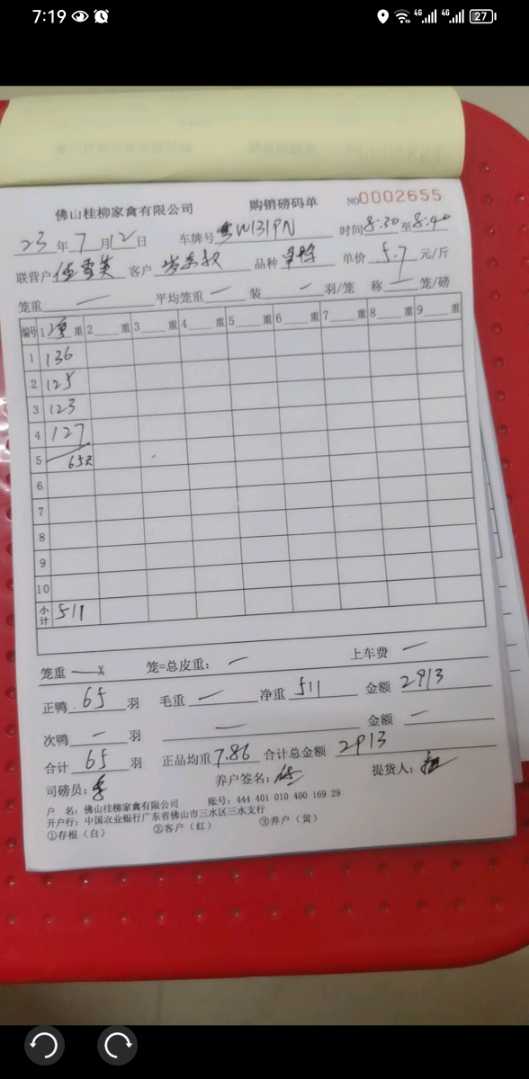 7:19
4G 4G 27
佛山桂柳家禽有限公司 购销磅码单 NO0002655
23年7月12日 车牌号粤W131PN 时间8:30至8:40
联营户 客户 品种 单价5.7元/斤
笼重— 平均笼重— 装—羽/笼 称—笼/磅
编号 1 重 2 重 3 重 4 重 5 重 6 重 7 重 8 重 9 重
1 136
2 125
3 123
4 127
5 65只
6
7
8
9
10
小计 511
笼重—x 笼=总皮重:— 上车费—
正鸭65羽 毛重— 净重511 金额2913
次鸭—羽 — 金额—
合计65羽 正品均重7.86 合计总金额2913
司磅员:李 养户签名: 提货人:
户 名:佛山桂柳家禽有限公司 账号:444 401 010 400 169 29
开户行:中国农业银行广东省佛山市三水区三水支行
①存根(白) ②客户(红) ③养户(黄)